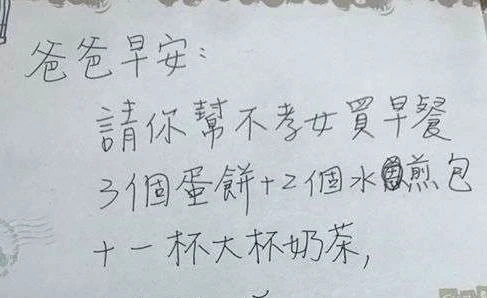 爸爸早安：
請你幫不孝女買早餐
3個蛋餅+2個水煎包
+一杯大杯奶茶，